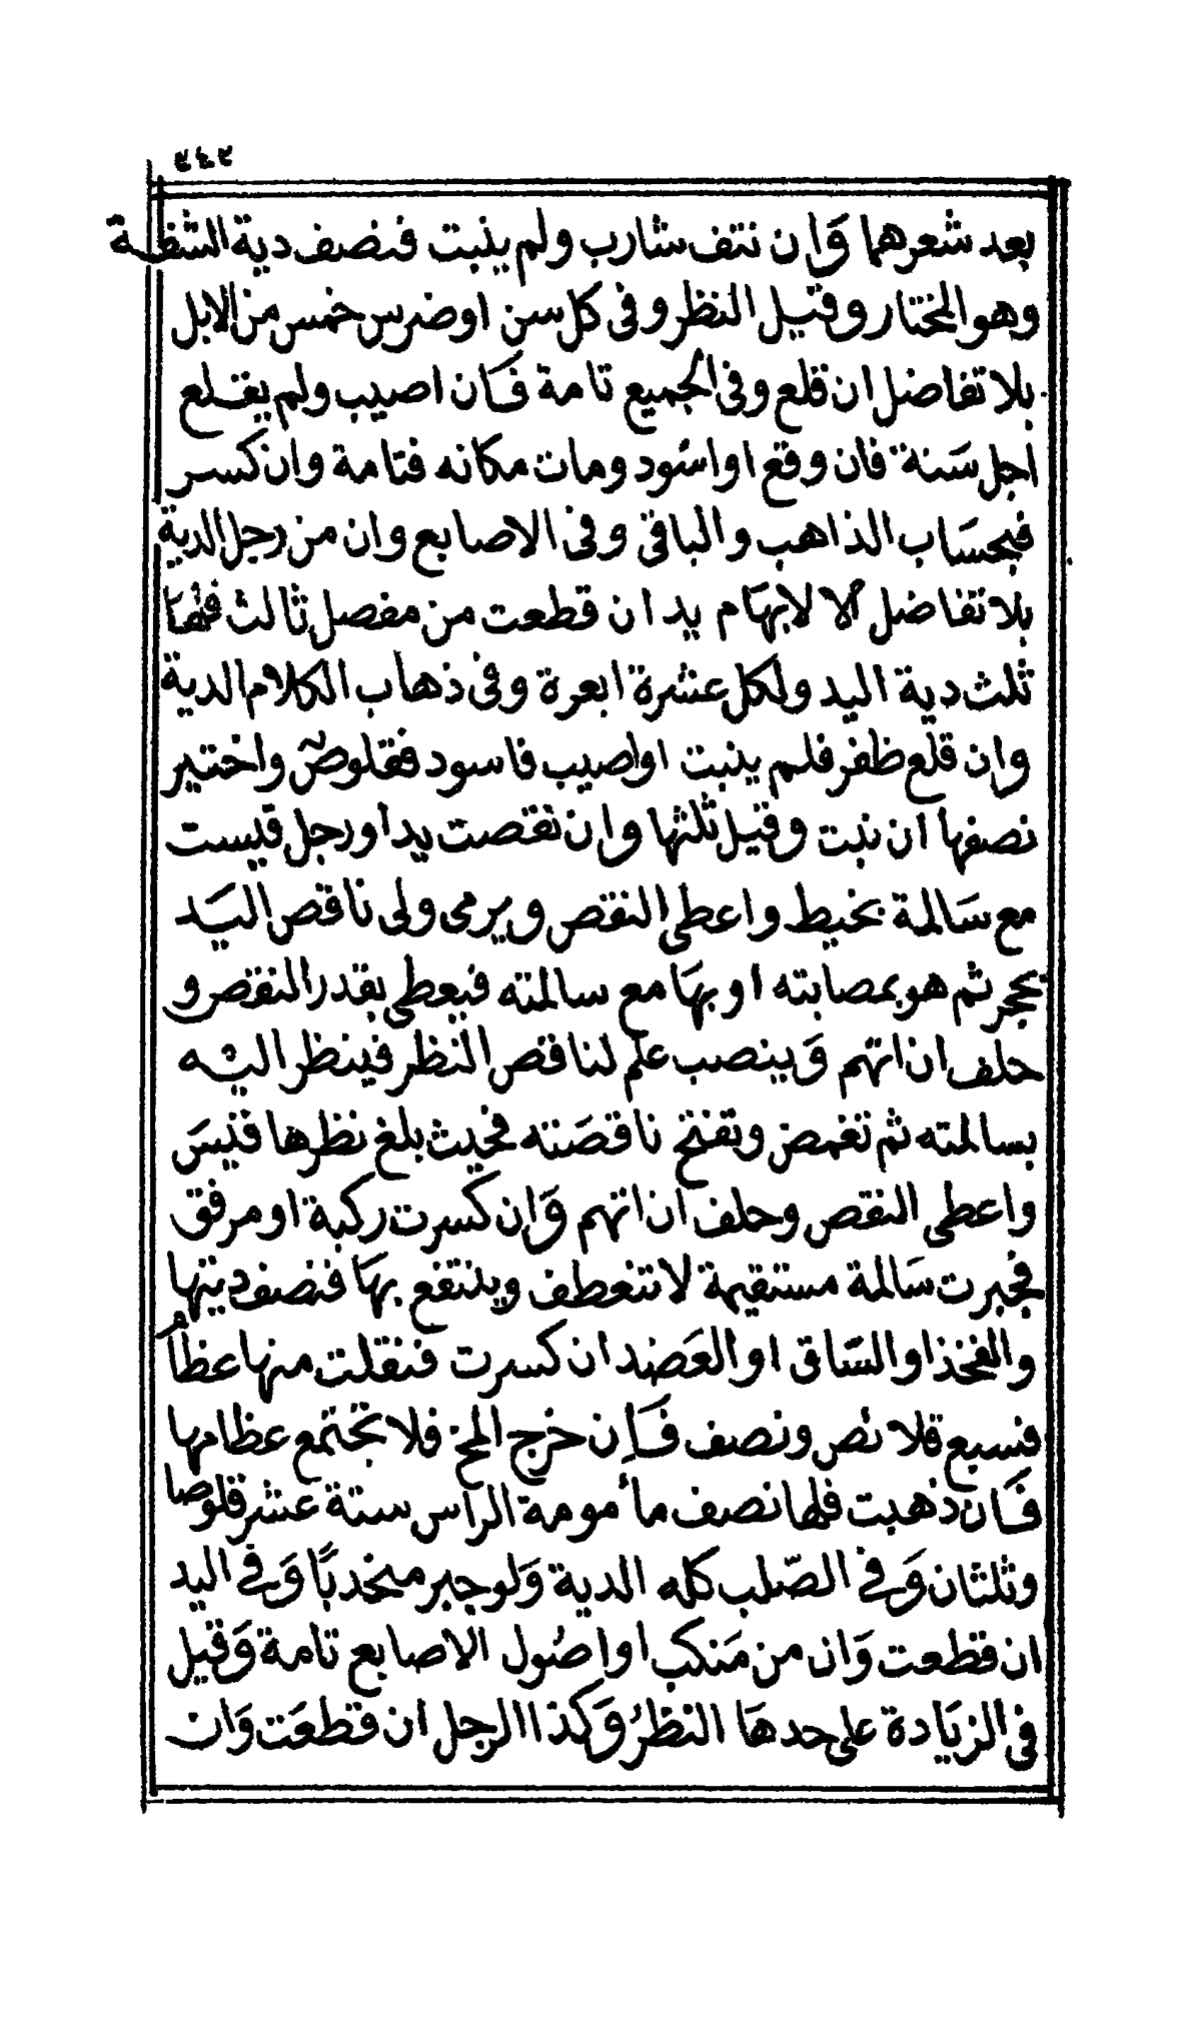 ٢٤٢
بعد شعرهما وَإن نتف شارب ولم ينبت فنصف دية الشفة
وهو المختار وقيل النظر وفى كل سن اوضرس خمس من الابل
بلا تفاضل ان قلع وفى الجميع تامة فَان اصيب ولم يقلع
اجل سَنة فان وقع اواسود ومات مكانه فتامة وان كسر
فبحسَاب الذاهب والباقى وفى الاصابع وان من رجل الدية
بلا تفاضل الا لابهَام يد ان قطعت من مفصل ثالث فلهَا
ثلث دية اليد ولكل عشرة ابعرة وفى ذهاب الكلام الدية
وان قلع ظفر فلم ينبت اواصيب فاسود فقلوصٌ واختير
نصفها ان نبت وقيل ثلثها وان نقصت يد اورجل قيست
مع سَالمة بخيط واعطى النقص ويرمى ولى ناقص اليَد
بحجر ثم هو بمصابته او بهَا مع سالمته فيعطى بقدر النقص و
حلف ان اتهم وَينصب علم لناقص النظر فينظر اليه
بسالمته ثم تغمض وتفتح ناقصَته فحيث بلغ نظرها قيسَ
واعطى النقص وحلف ان اتهم وَإن كسرت ركبة او مرفق
فجبرت سَالمة مستقيمة لاتنعطف وينتفع بهَا فنصف ديتها
والفخذ اوالسّاق اوالعَضد ان كسرت فنقلت منها عظامٌ
فسبع قلائص ونصف فَإن خرج المخ فلا تجتمع عظامها
فَان ذهبت فلها نصف مأمومة الراس ستة عشر قلوصا
وثلثان وَفي الصّلب كله الدية وَلو جبر منحدبًا وَفي اليد
ان قطعت وَان من مَنكب اواصُول الاصابع تامة وَقيل
فى الزيَادة على حدهَا النظرُ وَكذا الرجل ان قطعَت وَان